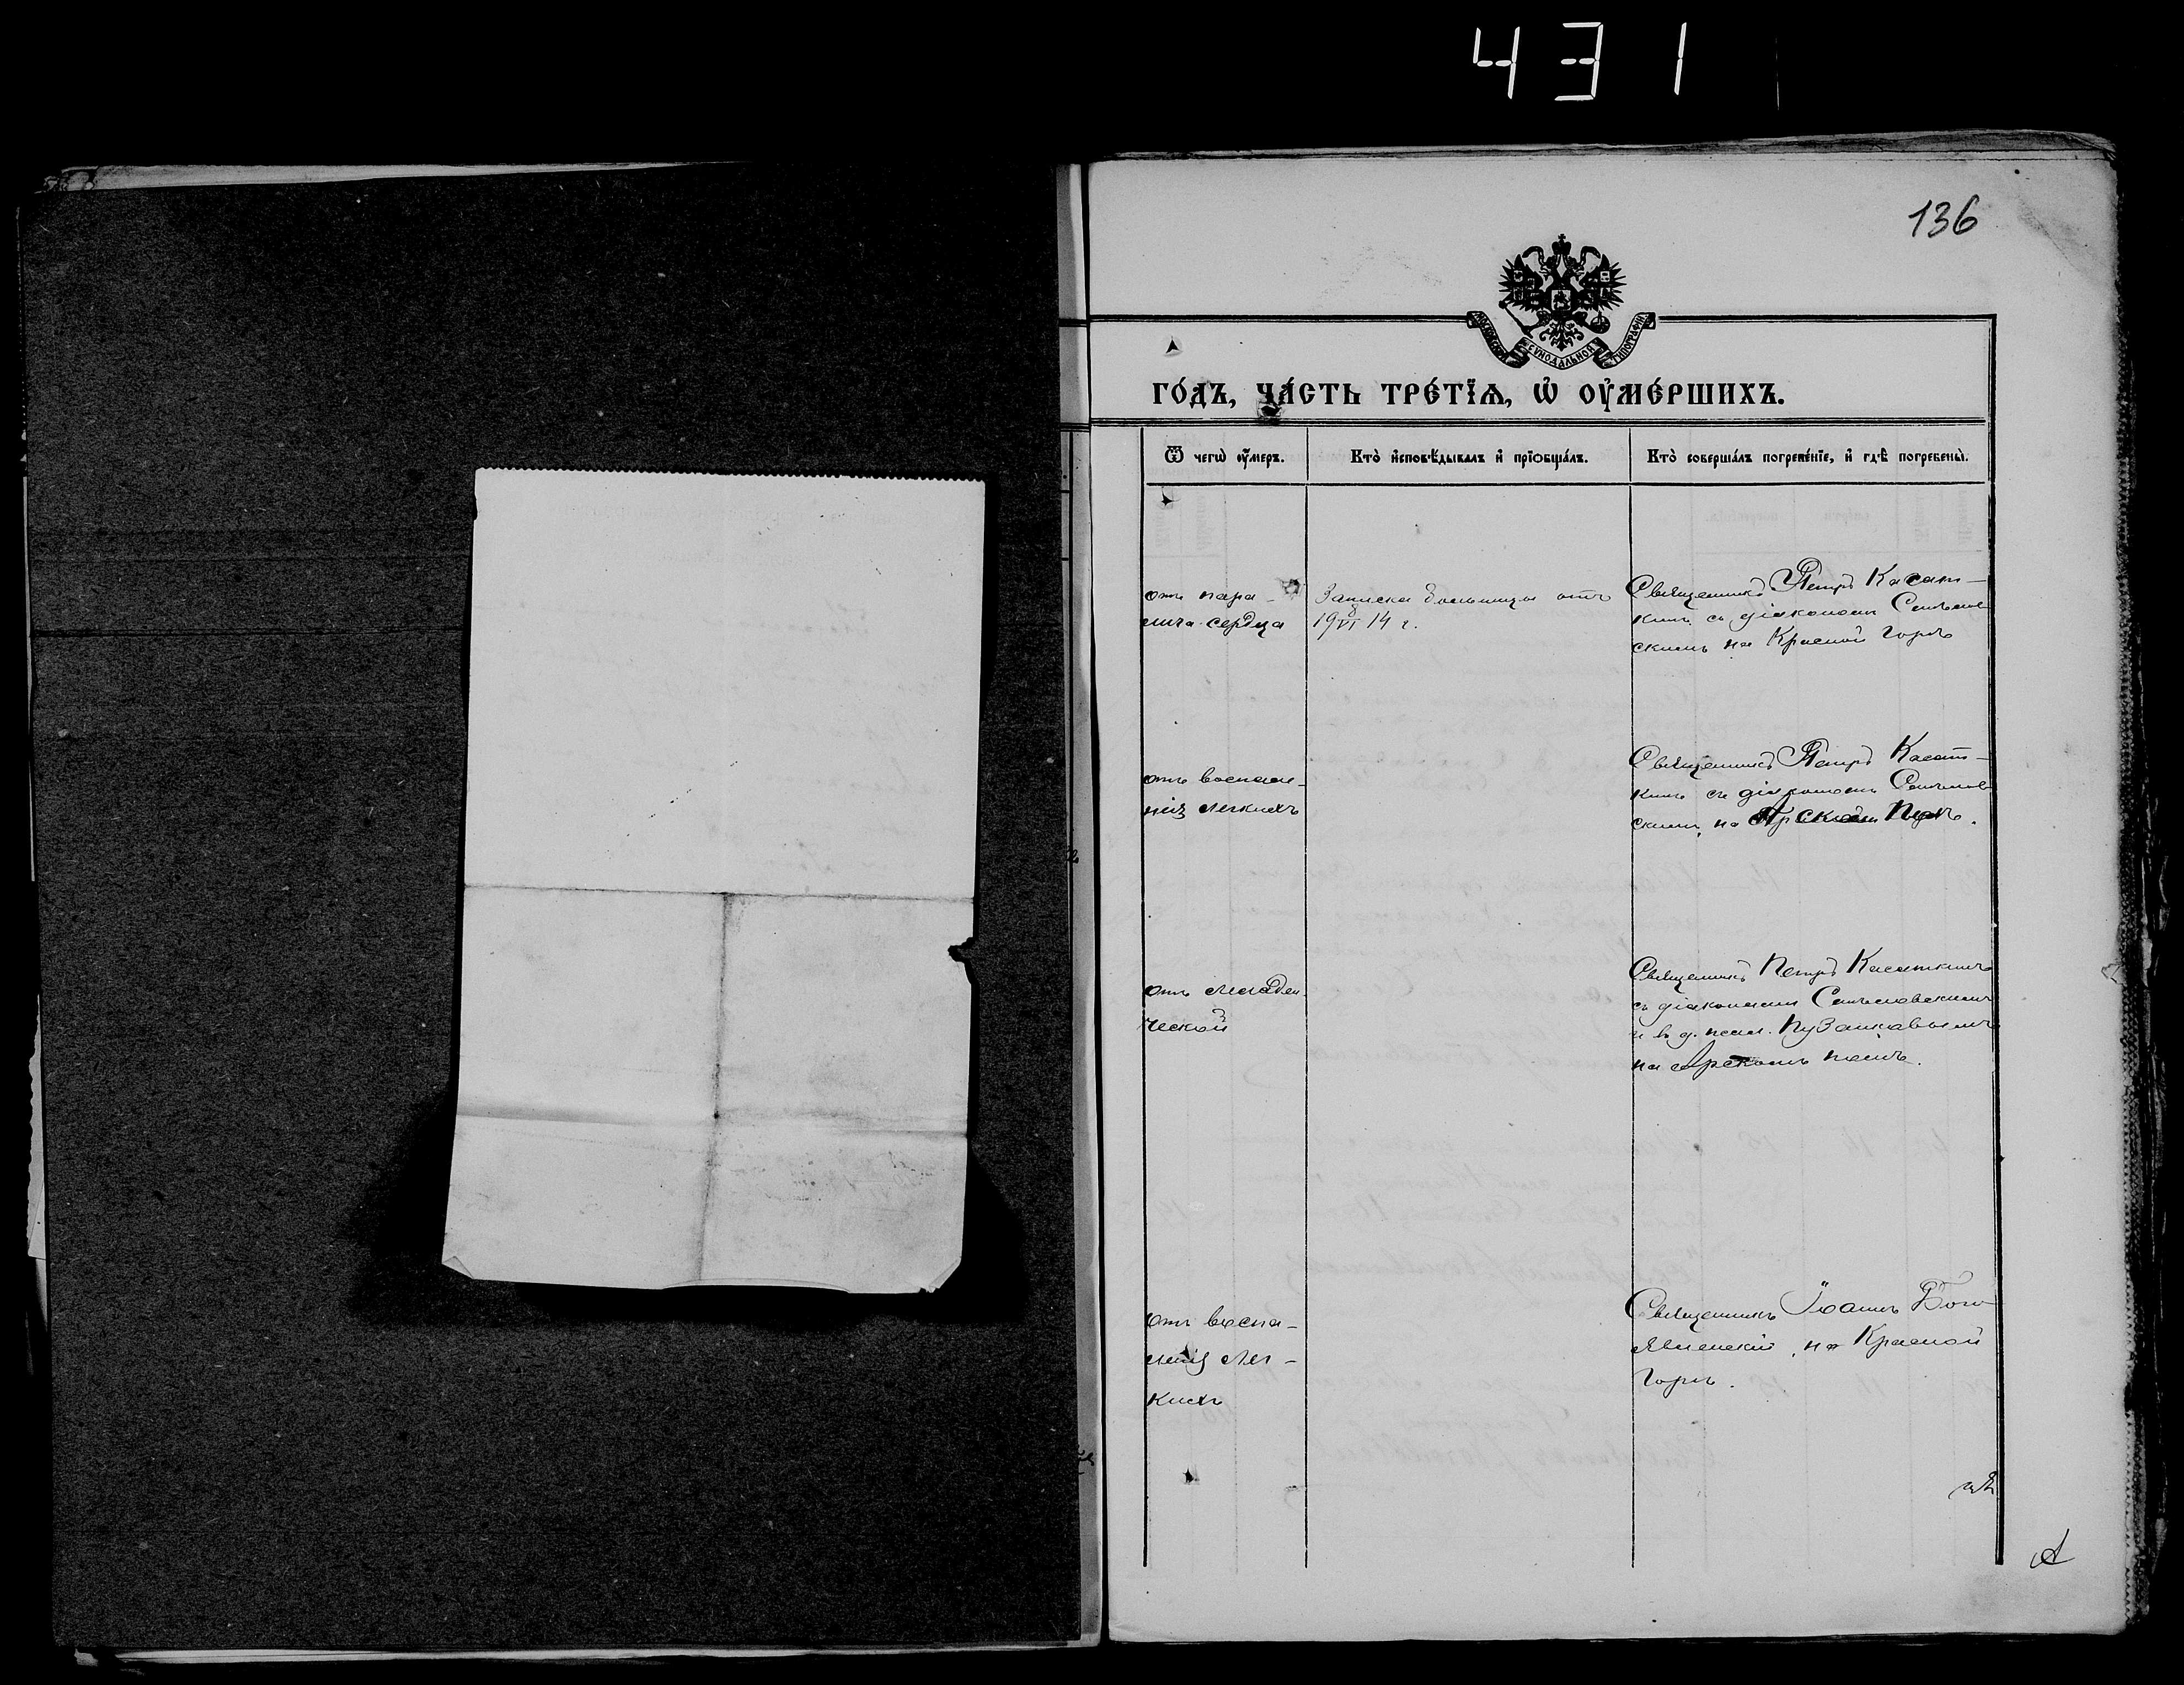 431
136
МОСКОВСКОЙ СѴНОДАЛЬНОЙ ТИПОГРАФІИ
ГО́ДЪ, ЧА́СТЬ ТРЕ́ТЇѦ, Ѡ҆ ОУ҆МЕ́РШИХЪ.
Ѿ чегѡ̀ оу҆́меръ.
Кто̀ и҆сповѣ́дывалъ и҆ прїѡбща́лъ.
Кто̀ соверша́лъ погребе́нїе, и҆ гдѣ̀ погребены̀.
отъ пара-
лича сердца
Записка больницы отъ
19 8/VI 14 г.
Священникъ Петръ Касат-
кинъ съ діакономъ
скимъ на Красной Горѣ
отъ воспале-
нія легкихъ
Священникъ Петръ Касат-
кинъ съ діакономъ
скимъ на Арскомъ полѣ.
отъ младен-
ческой
Священникъ Петръ Касаткинъ
съ діакономъ
и в. д. псал. Пузанковымъ
на Арскомъ полѣ.
отъ воспа-
ленія лег-
кихъ
Священникъ Іоаннъ Бого-
явленскій, на Красной
Горѣ.